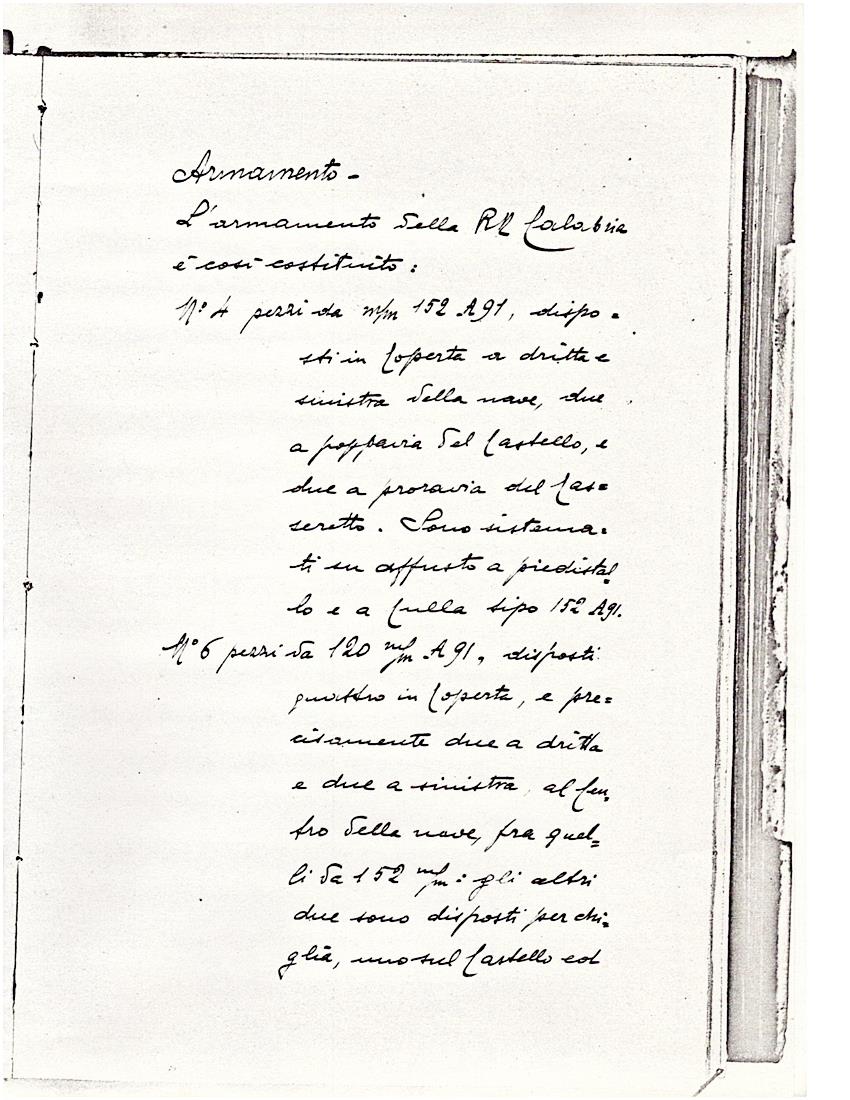 Armamento -
L'armamento della RN Calabria
è così costituito :
N° 4 pezzi da m/m 152 A 91, dispo =
sti in Coperta a dritta e
sinistra della nave, due
a poppavia del Castello, e
due a proravia del Cas=
seretto. Sono sistema=
ti su affusto a piedistal
lo e a culla tipo 152 A91.
N° 6 pezzi da 120 m/m A 91, disposti
quattro in Coperta, e pre=
cisamente due a dritta
e due a sinistra, al Cen=
tro della nave, fra quel=
li da 152 m/m : gli altri
due sono disposti per chi=
glia, uno sul Castello ed